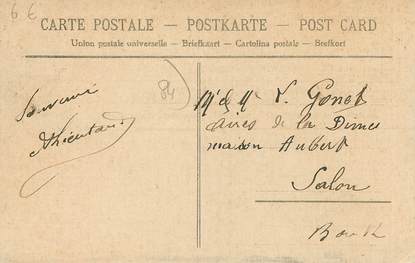 6 €
CARTE POSTALE – POSTKARTE – POST CARD
Union postale universelle – Briefkaart – Cartolina postale – Brefkort
84
Souvenir
Mr & Me L. Gonet
Aires de la Dime
maison Aubert
Salon